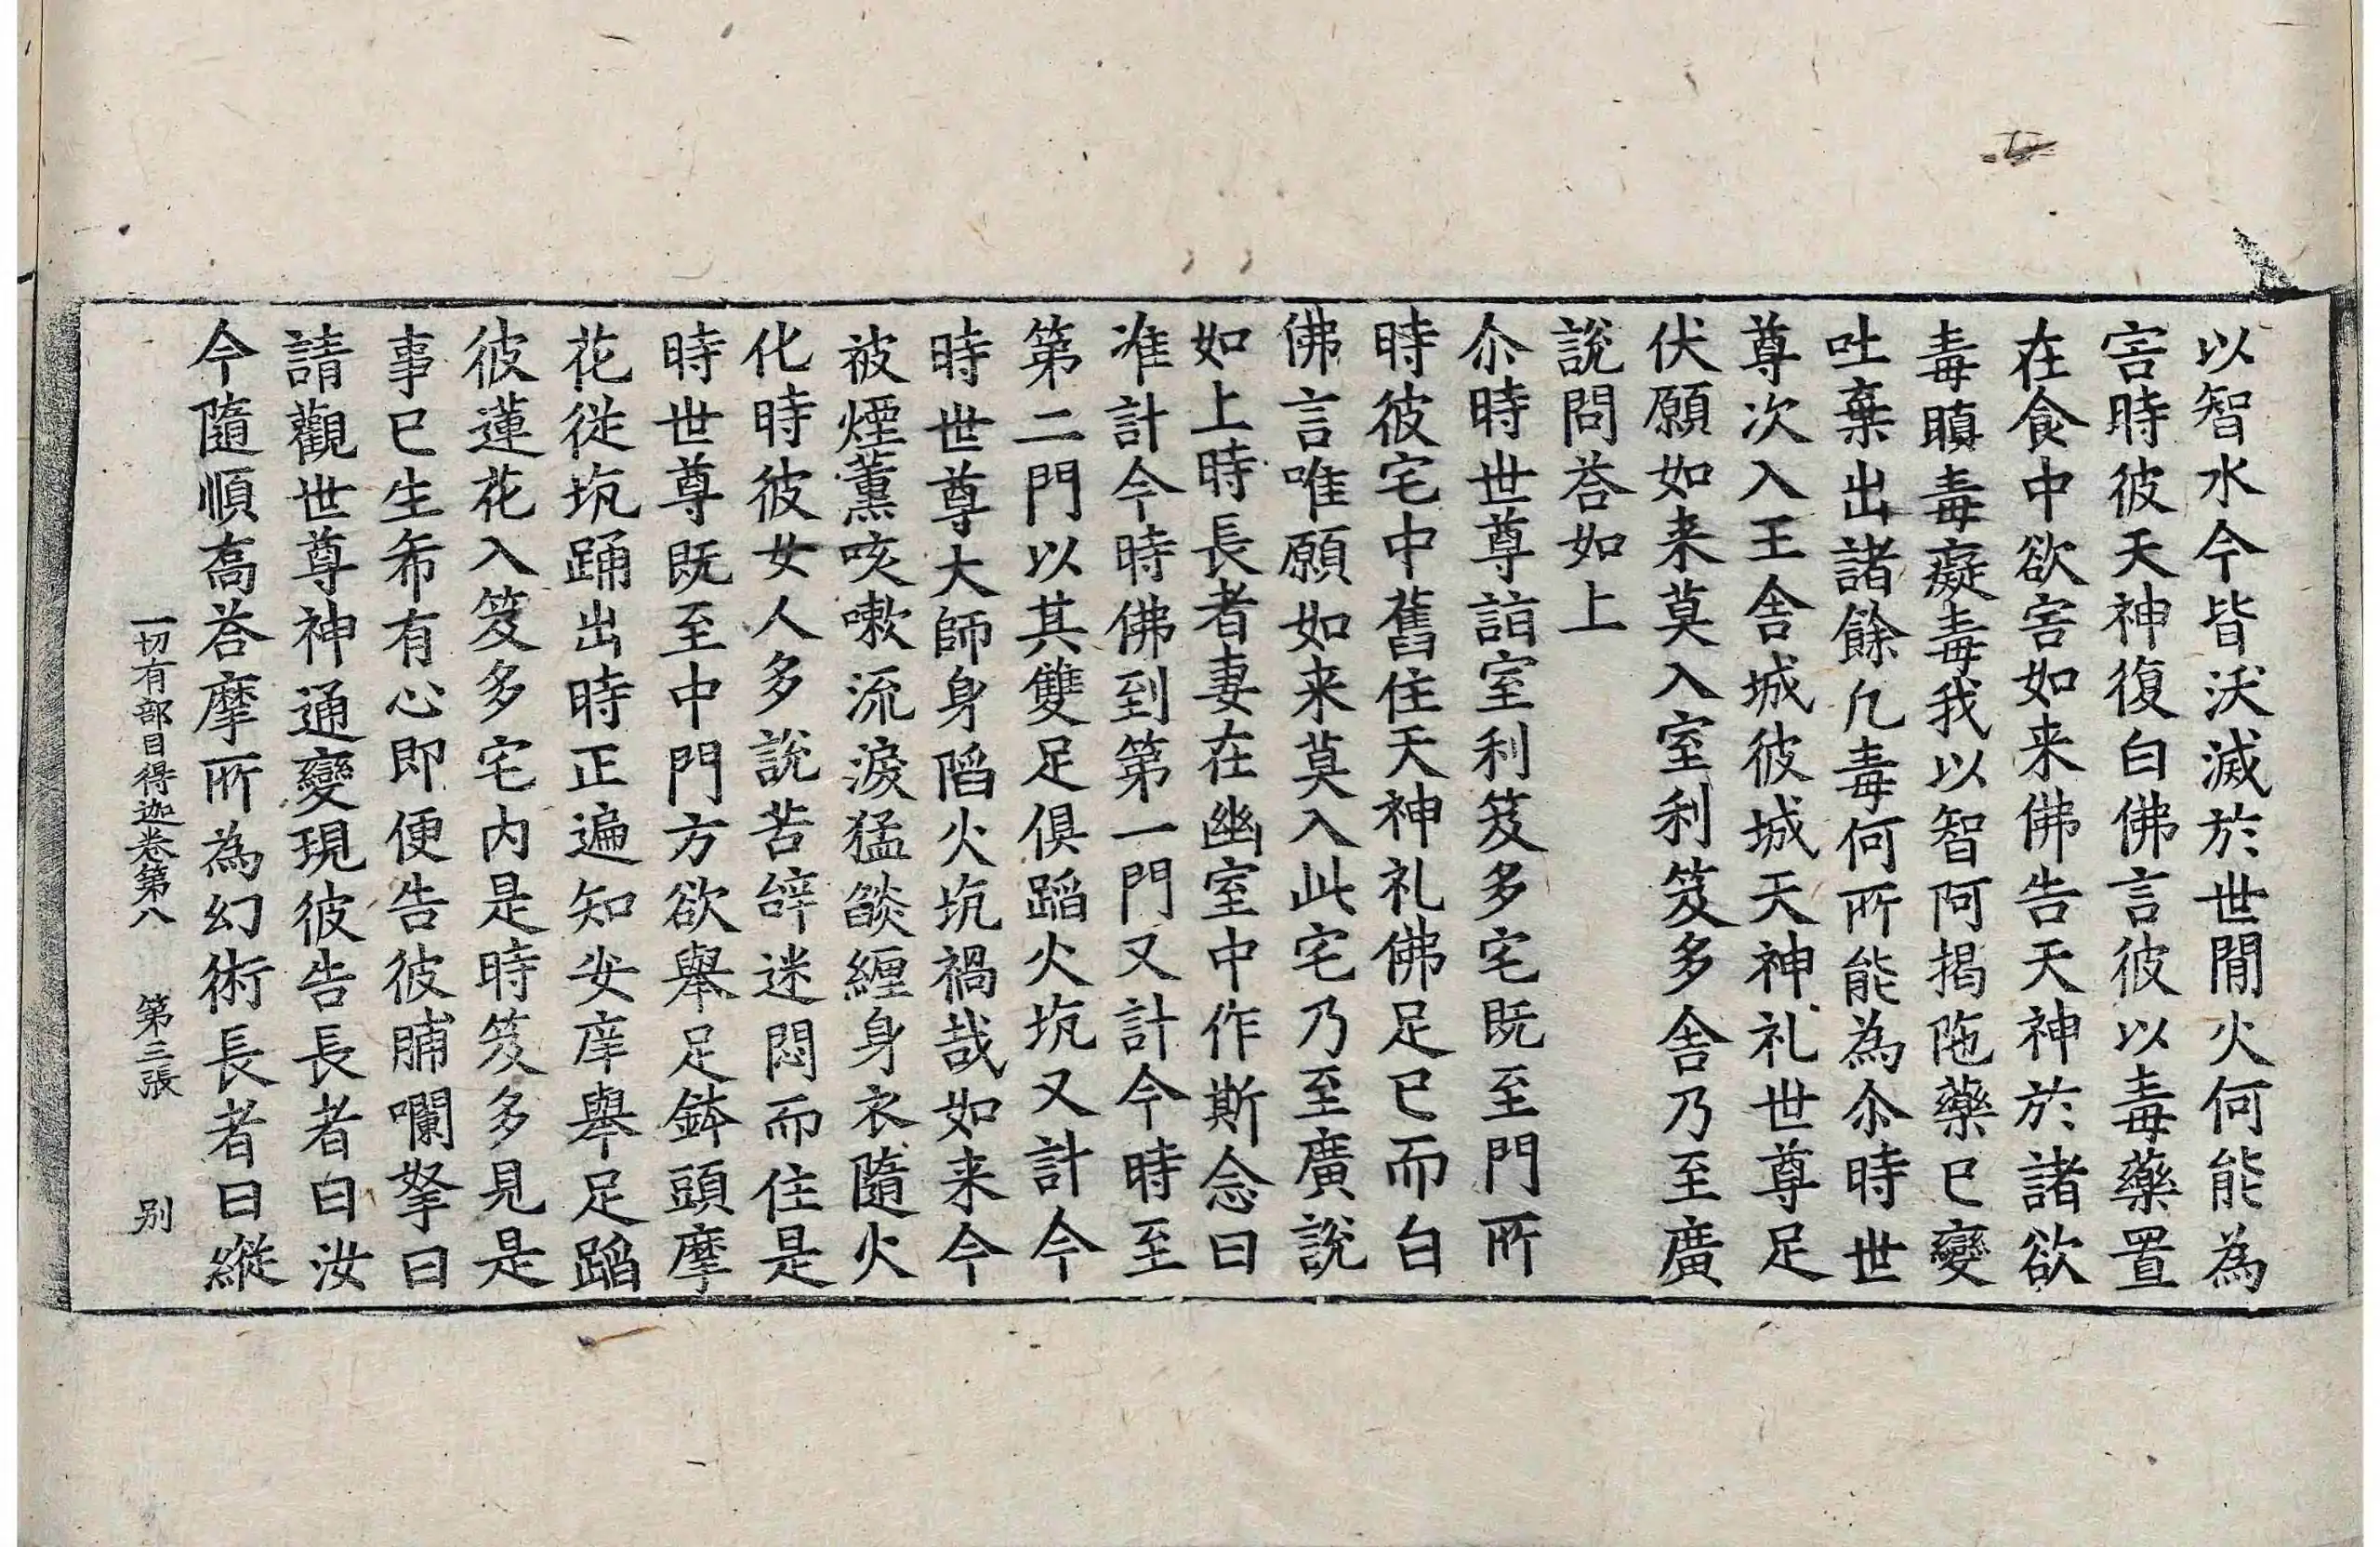 以智水今皆沃滅於世間火何能為
害時彼天神復白佛言彼以毒藥置
在食中欲害如来佛告天神於諸欲
毒瞋毒癡毒我以智阿揭陁藥已變
吐棄出諸餘凡毒何所能為尒時世
尊次入王舍城彼城天神礼世尊足
伏願如来莫入室利笈多舍乃至廣
說問荅如上
尒時世尊詣室利笈多宅既至門所
時彼宅中舊住天神礼佛足已而白
佛言唯願如来莫入此宅乃至廣說
如上時長者妻在幽室中作斯念曰
准計今時佛到第一門又計今時至
第二門以其雙足俱蹈火坑又計今
時世尊大師身陷火坑禍哉如来今
被煙薰咳嗽流淚猛燄纏身衣隨火
化時彼女人多說苦辝迷悶而住是
時世尊既至中門方欲舉足鉢頭摩
花從坑踊出時正遍知安庠舉足蹈
彼蓮花入笈多宅內是時笈多見是
事已生希有心即便告彼脯囒拏曰
請觀世尊神通變現彼告長者曰汝
今隨順高荅摩所為幻術長者曰縱
一切有部目得迦卷第八 第三張 别